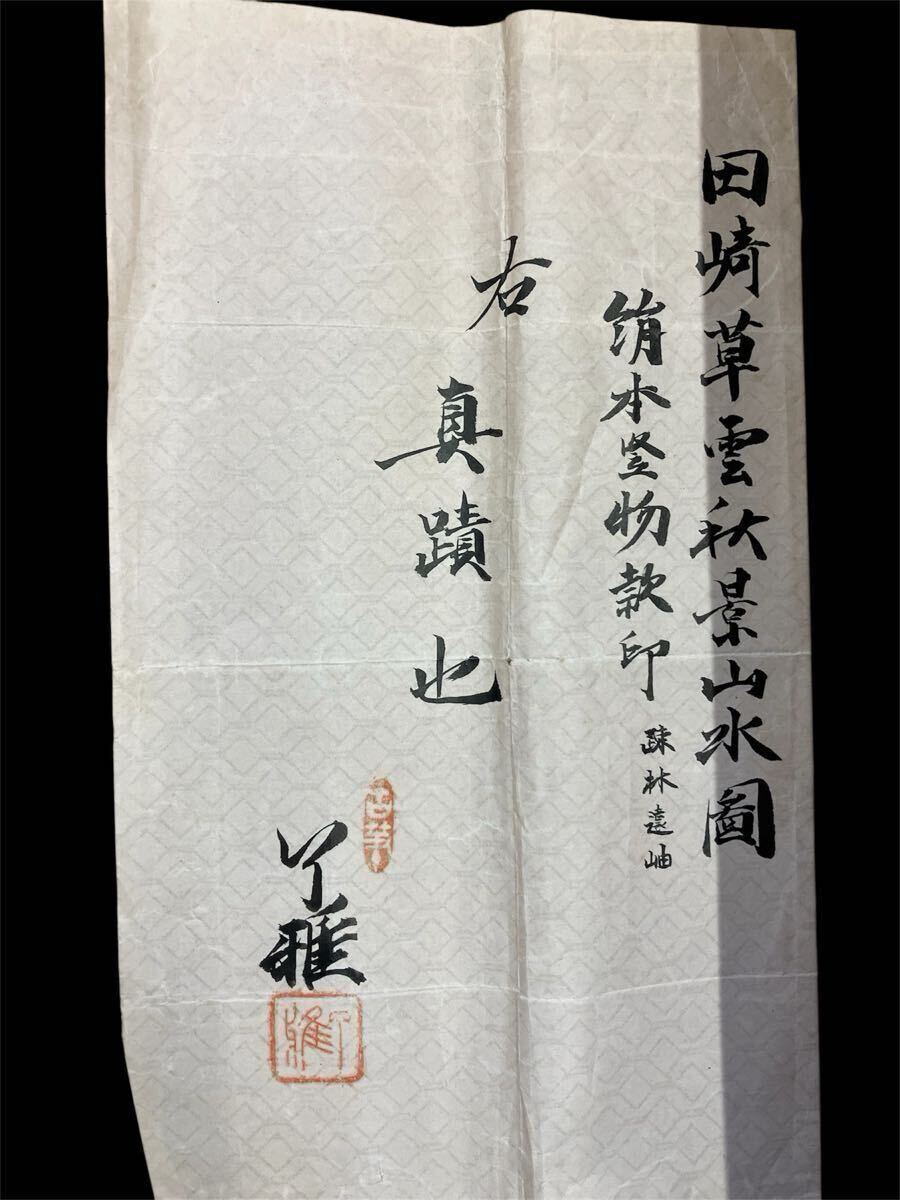 田崎草雲秋景山水圖
絹本竪物款印 踈林遠岫
右真蹟也
了雅